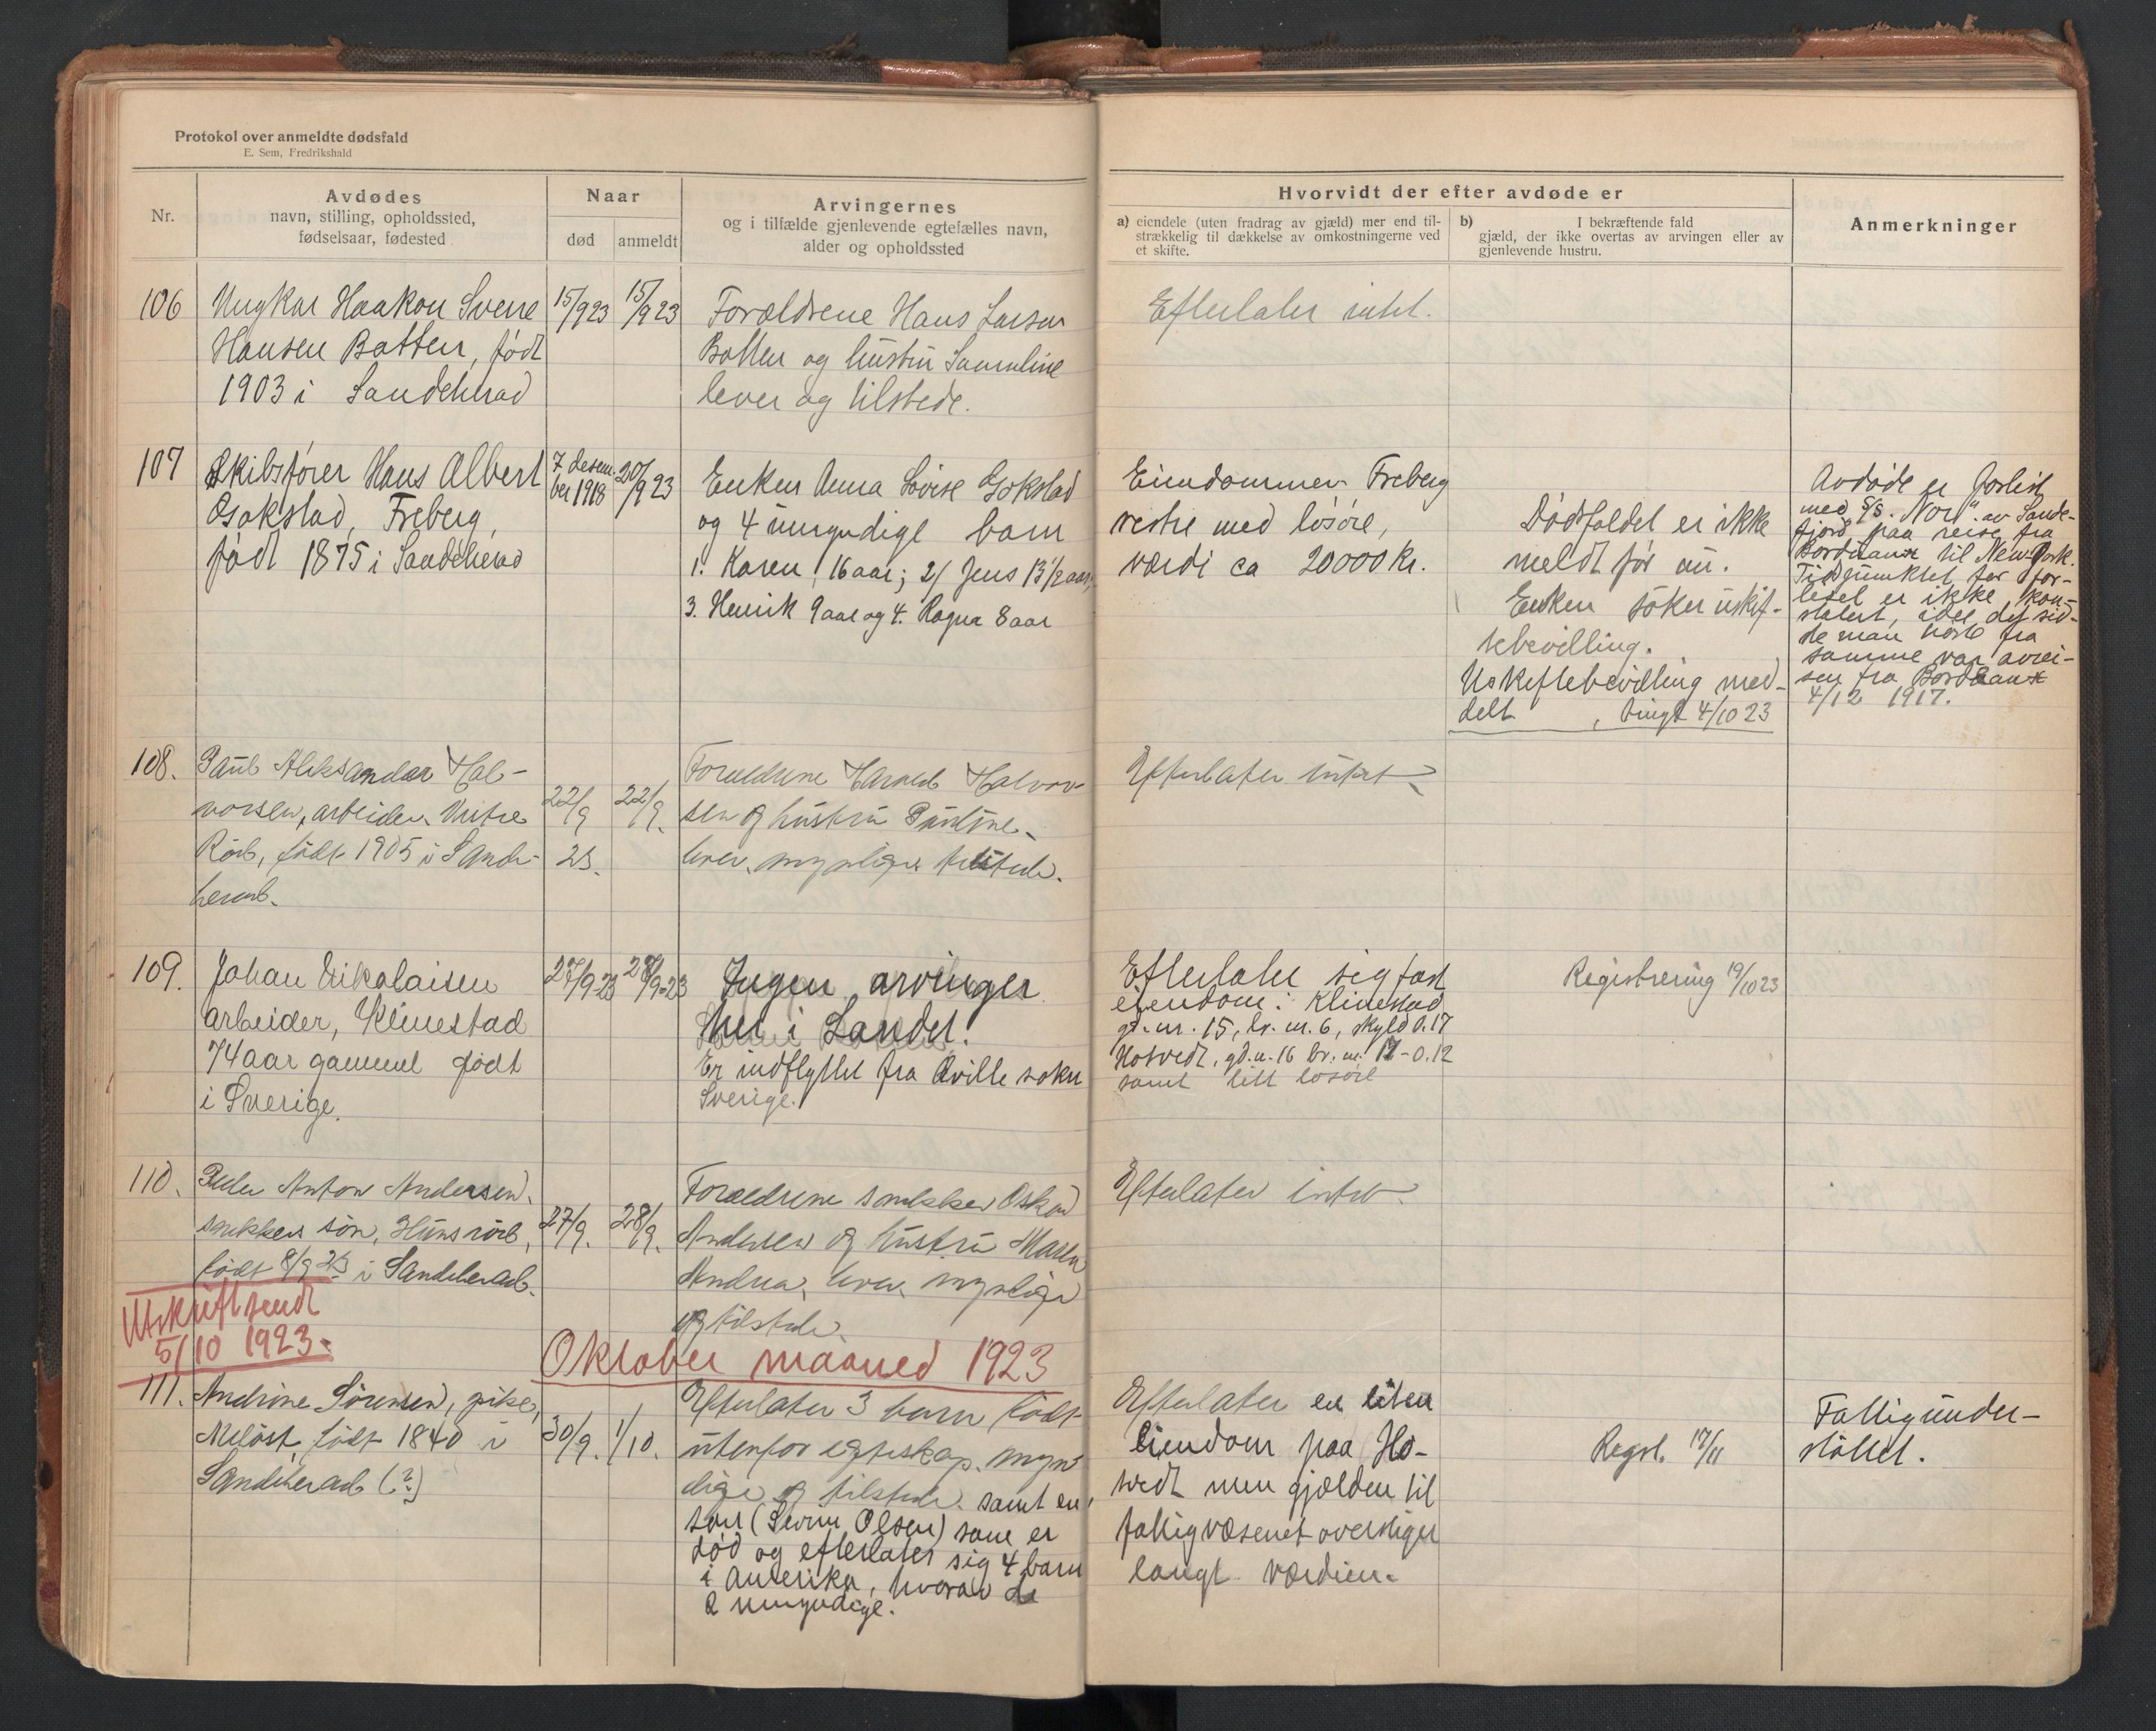 Protokol over anmeldte dødsfald
E. Sem, Fredrikshald
Nr.
Avdødes
navn, stilling, opholdssted,
fødselsaar, fødested
Naar
død
anmeldt
Arvingernes
og i tilfælde gjenlevende egtefælles navn,
alder og opholdssted
Hvorvidt der efter avdøde er
a) eiendele (uten fradrag av gjæld) mer end til-
strækkelig til dækkelse av omkostningerne ved
et skifte.
b) I bekræftende fald
gjæld, der ikke overtas av arvingen eller av
gjenlevende hustru.
Anmerkninger
106
Ungkar Haakon Sverre
Hansen Batten, født
1903 i Sandeherad
15/9 23
15/9 23
Forældrene Hans Larsen
Batten og hustru Samuline
lever og tilstede.
Efterlater intet.
107
Skibsfører Hans Albert
Gokstad, Freberg,
født 1875 i Sandeherad
7 desem-
ber 1918
20/9 23
Enken Anna Lovise Gokstad
og 4 umyndige barn
1. Karen 16 aar; 2/ Jens 13 1/2 aar,
3. Henrik 9 aar og 4. Ragna 8 aar
Eiendommen Freberg
vestre med løsøre,
værdi ca 20000 Kr.
Dødsfaldet er ikke
meldt før nu.
Enken søker uskif-
tebevilling.
Uskiftebevilling med-
delt , tingl. 4/10 23
Avdøde er forlist
med S/S. "Nor" av Sande-
fjord paa reise fra
Bordeaux til New York.
Tidspunktet for for-
liset er ikke kon-
statert, idet det sid-
ste man hørte fra
samme var avrei-
sen fra Bordeaux
4/12 1917.
108.
Paul Aleksander Hal-
vorsen, arbeider, Vestre
Rød, født 1905 i Sande-
herad.
22/9
23.
22/9.
Forældrene Harald Halvor-
sen og hustru Pauline,
lever, myndige tilstede.
Efterlater intet
109.
Johan Nikolaisen
arbeider, Klinestad
74 aar gammel født
i Sverige.
27/9-23
28/9-23
Ingen arvinger
her i Landet.
Er indflyttet fra Qville sokn
Sverige.
Efterlater sig fast
eiendom i Klinestad
gd. nr. 15, br. nr. 6, skyld 0.17
Hotvedt, gd. n. 16 br. nr. 17 - 0.12
samt litt løsøre
Registrering 19/10 23
110.
Peder Anton Andersen,
snekkers søn, Hunsrød,
født 8/9 23 i Sandeherad.
27/9.
28/9.
Forældrene snekker Oskar
Andersen og hustru Maren
Andrea, lever, myndige
og tilstede.
Efterlater intet
Utskrift sendt
5/10 1923.
Oktober maaned 1923
111.
Andrine Sørensen, pike,
Meløst, født 1840 i
Sandeherad (?)
30/9.
1/10.
Efterlater 3 barn født
utenfor egteskap, myn-
dige og tilstede. samt en
søn (Severin Olsen) som er
død og efterlater sig 4 barn
i Amerika, hvorav de
2 umyndige.
Efterlater en liten
Eiendom paa Ho-
tvedt men gjælden til
fattigvæsenet overstiger
langt værdien.
Regst. 17/11
Fattigunder-
støttet.